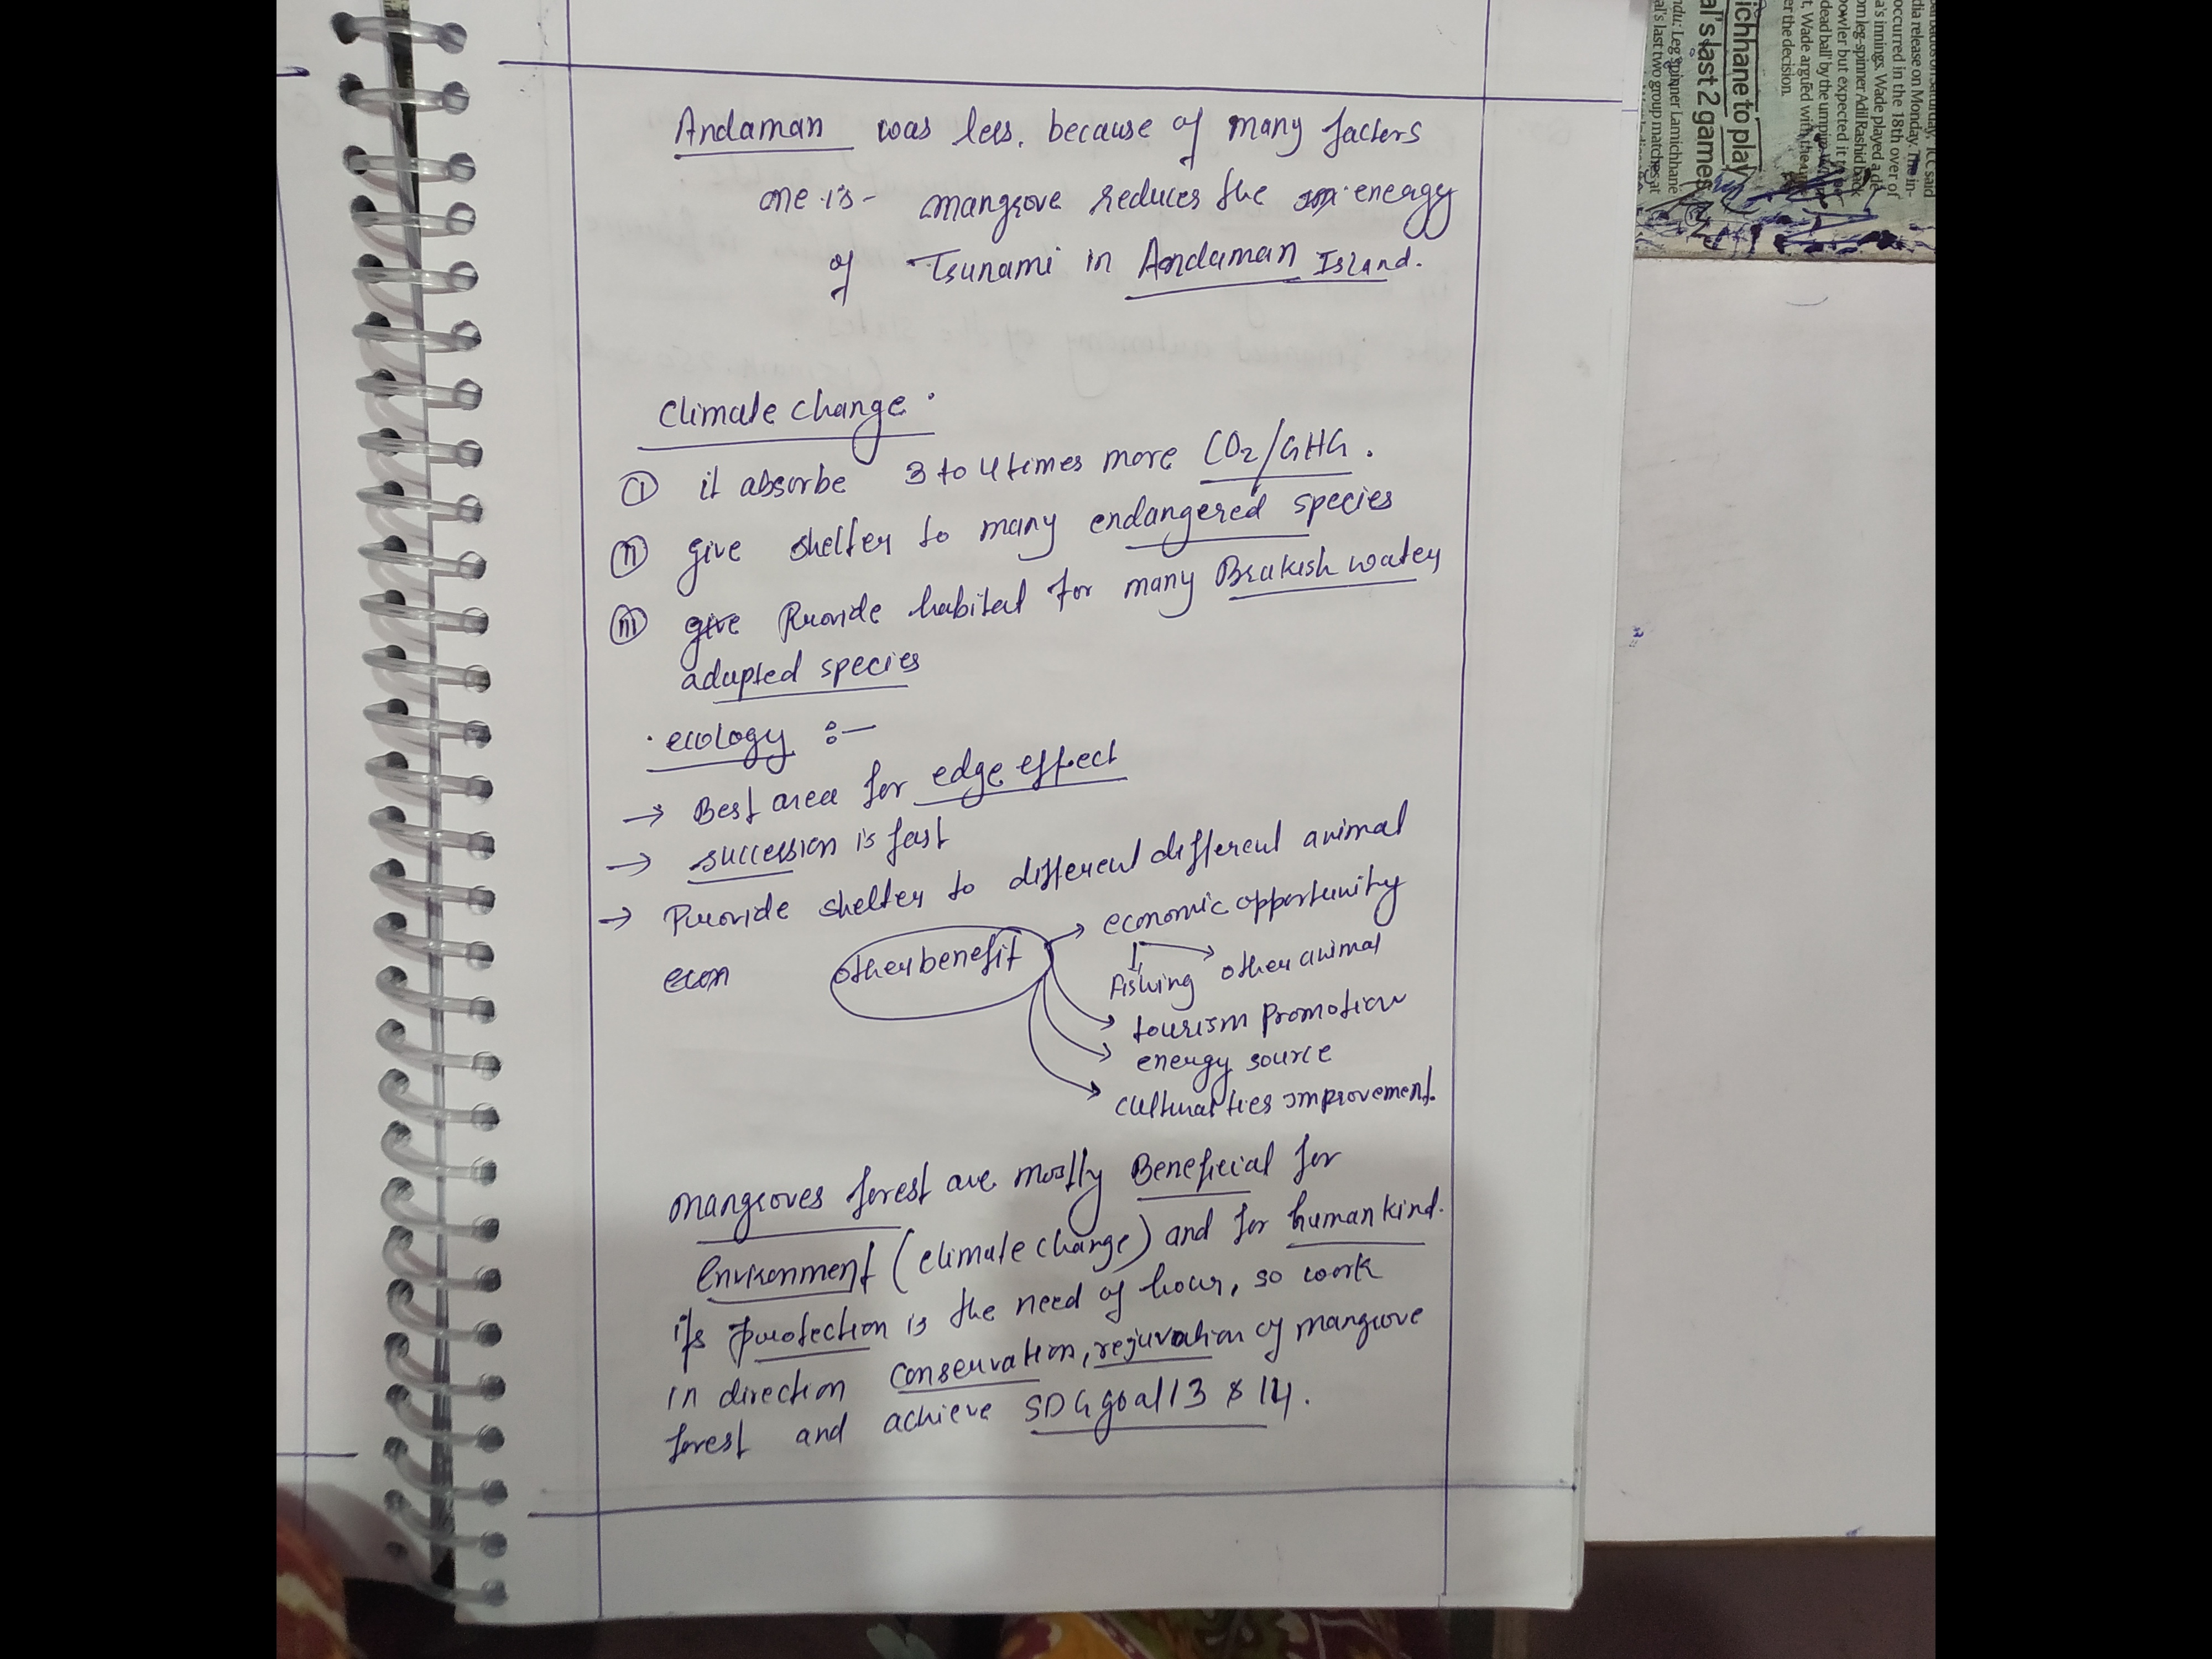 Andaman was less. because of many factors
one is - mangrove reduces the energy
of Tsunami in Andaman Island.
Climate change.
(i) it absorbe 3 to 4 times more CO2/GHG.
(ii) give shelter to many endangered species
(iii) give Provide habitat for many Brakish water
adapted species
· ecology :-
→ Best area for edge effect
→ succession is fast
→ Provide shelter to different different animal
econ other benefit → economic opportunity
fishing other animal
tourism promotion
energy source
cultural ties improvement.
Mangroves forest are mostly Beneficial for
Environment (climate change) and for human kind.
its protection is the need of hour, so work
in direction conservation, rejuvation of mangrove
forest and achieve SDG goal 13 & 14.
ichhane to play
al's last 2 games
ndu: Leg spinner Lamichhane
al's last two group matches at
ICC said
dia release on Monday. The in-
occurred in the 18th over of
a's innings. Wade played a de
om leg-spinner Adil Rashid back
bowler but expected it to
dead ball' by the umpire
t, Wade argued with the
er the decision.